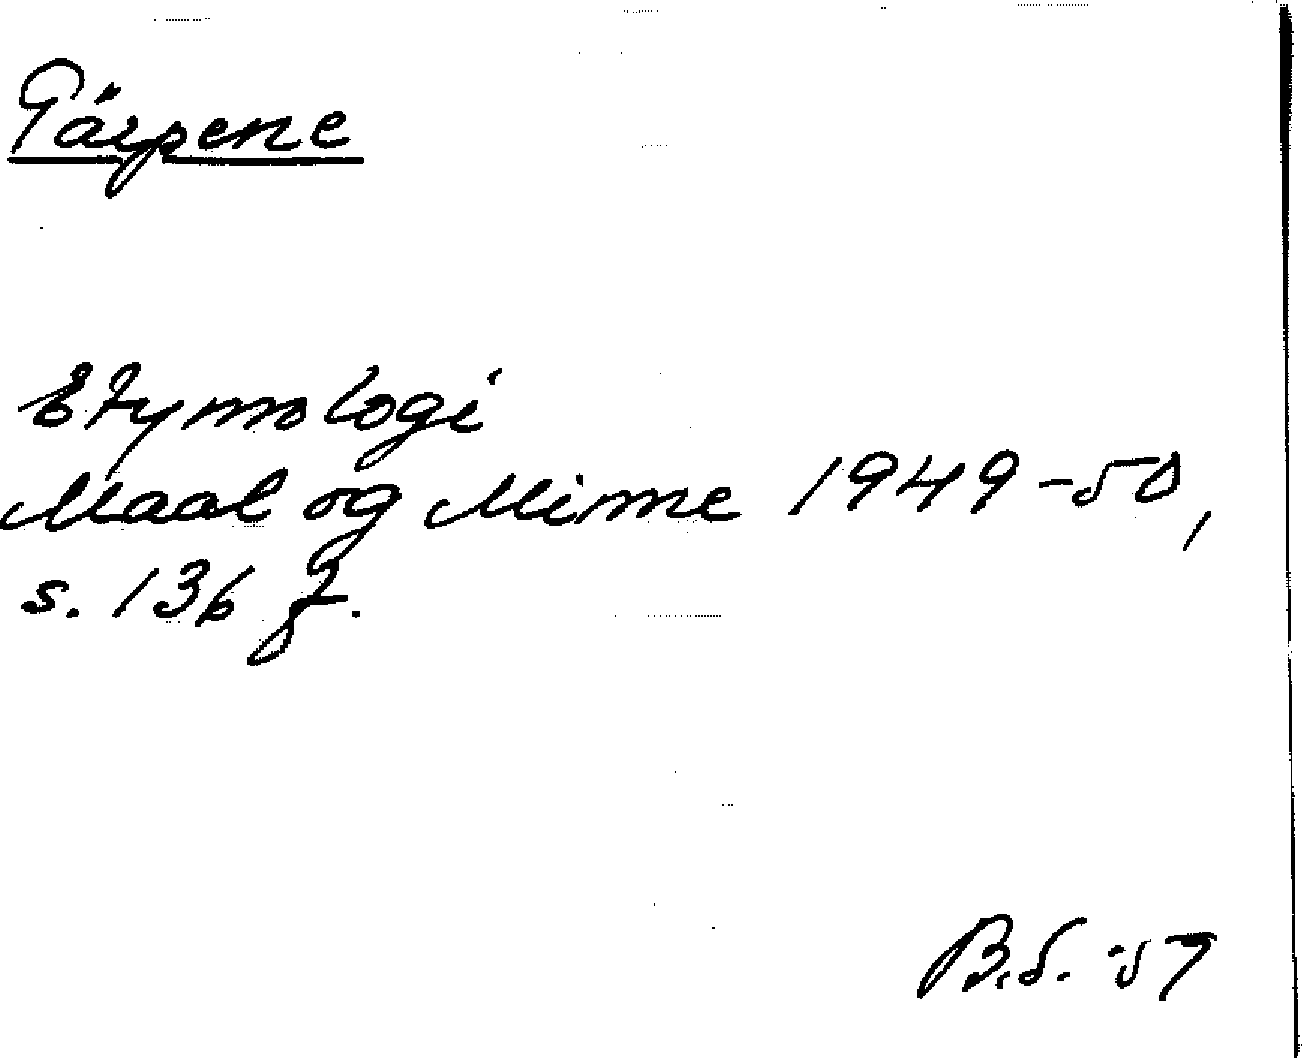 Pärpene
Etymologi
Maal og Minne 1949-50,
s. 136 f.
B.S. -57